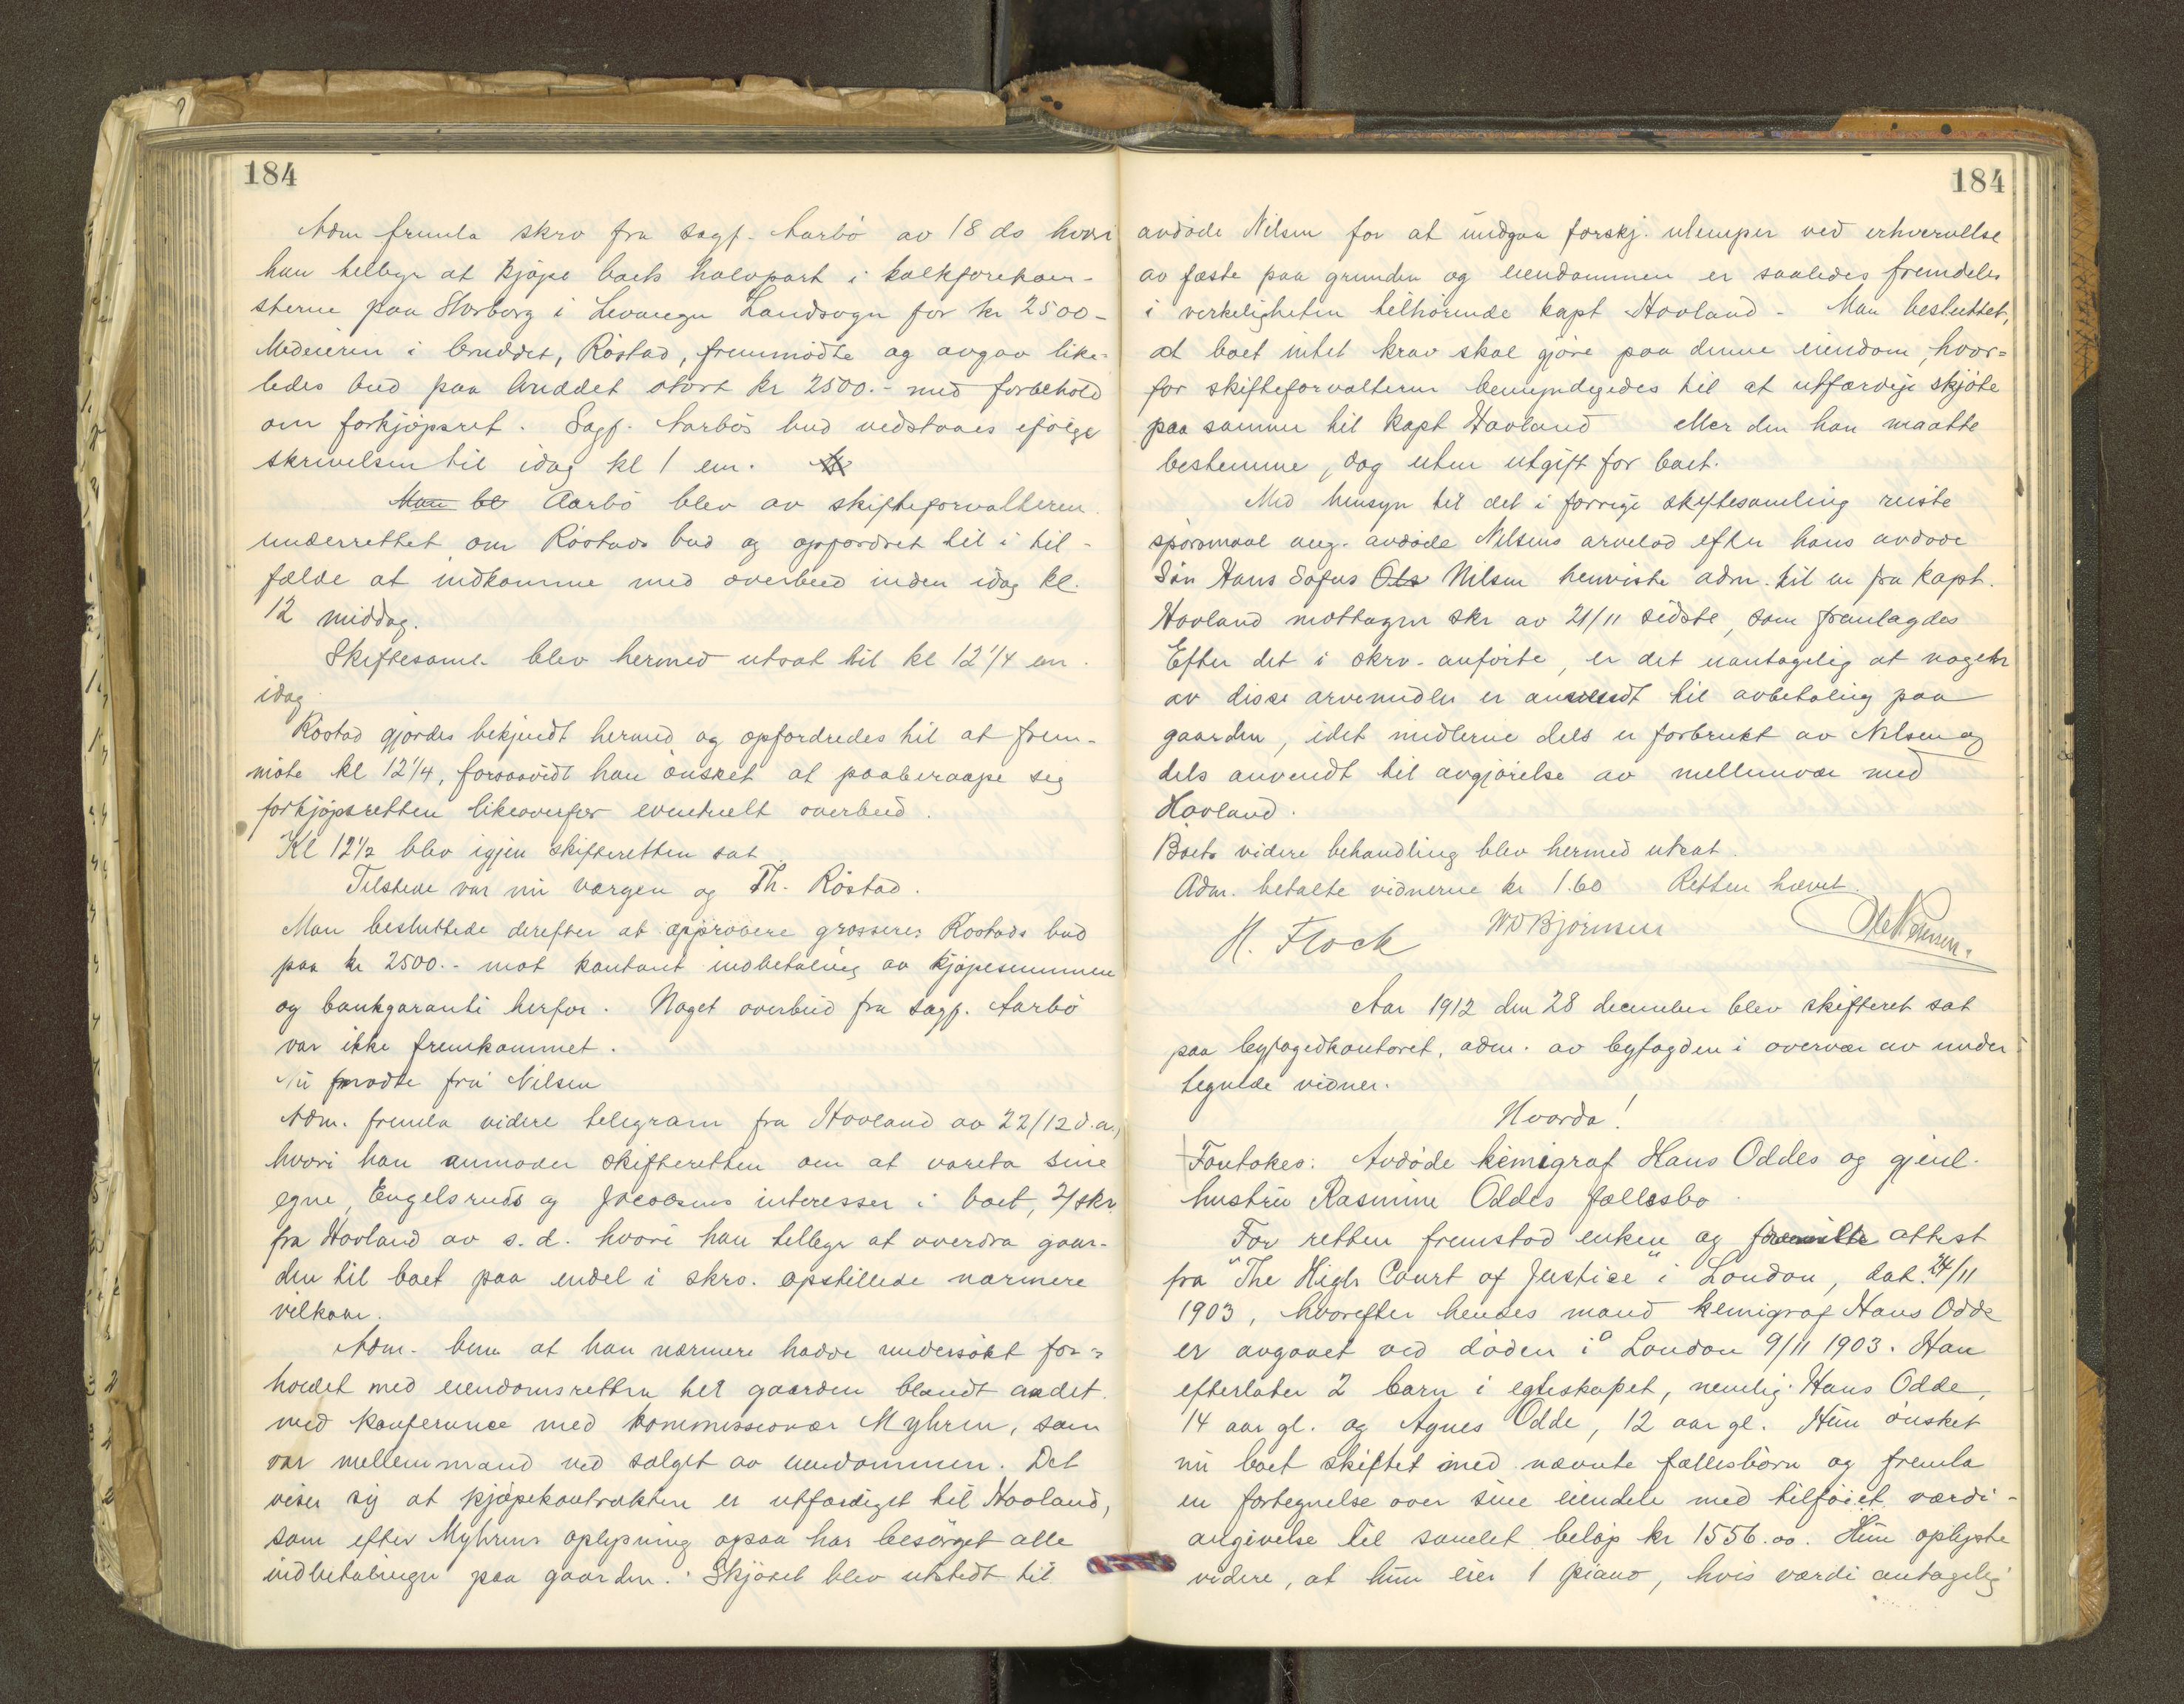 184
Adm fremla skrv fra sagf. Aarbö av 18 ds hvori
han tilbyr at kjöpe boets halvpart i kalkforekom-
sterne paa Storborg i Levanger Landsogn for kr 2500-
Medeieren i bruddet, Röstad, fremmödte og avgav like-
ledes bud paa bruddet stort kr 2500.- med forbehold
om forkjöpsret. Sagf. Aarbös bud vedstaaes ifölge
skrivelsen til idag kl 1 em.
Man bl Aarbö blev av skifteforvalteren
underrettet om Röstads bud og opfordret til i til-
fælde at indkomme med overbud inden idag kl.
12 middag.
Skiftesaml. blev hermed utsat til kl 12 1/4 em.
idag
Röstad gjordes bekjendt hermed og opfordredes til at frem-
möte kl 12 1/4, forsaavidt han önsket at paaberaape sig
forkjöpsretten likeoverfor eventuelt overbud.
Kl 12 1/2 blev igjen skifteretten sat
Tilstede var nu værgen og Th. Röstad.
Man besluttede derefter at approbere grosserer Röstads bud
paa kr 2500.- mot kontant indbetaling av kjöpesummen
og bankgaranti herfor. Noget overbud fra sagf. Aarbö
var ikke fremkommet.
Nu mödte fru Nilsen
Adm. fremla videre telegram fra Hovland av 22/12 d.a.,
hvori han anmoder skifteretten om at vareta sine
egne, Engelsruds og Jacobsens interesser i boet, 2/ skr.
fra Hovland av s.d. hvori han tilbyr at overdra gaar-
den til boet paa endel i skrv. opstillede nærmere
vilkaar.
Adm. bem at han nærmere hadde undersökt for-
holdet med eiendomsretten til gaarden blandt andet
ved konferance med kommissionær Myhren, som
var mellemmand ved salget av eiendommen. Det
viser sig at kjöpekontrakten er utfærdiget til Hovland,
som efter Myhrens oplysning ogsaa har besörget alle
indbetalinger paa gaarden. Skjötet blev utstedt til
184
avdöde Nilsen for at undgaa forskj. ulemper ved erhvervelse
av fæste paa grunden og eiendommen er saaledes fremdeles
i virkeligheten tilhörende kapt Hovland - Man besluttet,
at boet intet krav skal gjöre paa denne eiendom, hvor-
for skifteforvalteren bemyndigedes til at utfærdige skjöte
paa samme til kapt Hovland eller den han maatte
bestemme, dog uten utgift for boet.
Med hensyn til det i forrige skiftesamling reiste
spörsmaal ang. avdöde Nilsens arvelod efter hans avdöde
Sön Hans Sofus Ols Nilsen henviste adm. til en fra kapt.
Hovland mottagen skr av 21/11 sidste, som fremlagdes
Efter det i skrv. anförte, er det uantagelig at noget
av disse arvemidler er anvendt til avbetaling paa
gaarden, idet midlerne dels er forbrukt av Nilsen og
dels anvendt til avgjörelse av mellemvær med
Hovland.
Boets videre behandling blev hermed utsat.
Adm. betalte vidnerne kr 1.60 Retten hævet.
H. Flock WD Bjørnsen
Aar 1912 den 28 december blev skifteret sat
paa byfogedkontoret, adm. av byfogden i overvær av under-
tegnede vidner.
Hvorda!
Foretokes: Avdöde kemigraf Hans Oddes og gjenl.
hustru Rasmine Oddes fællesbo.
For retten fremstod enken og attest
fra "The High Court of Justice" i London, dat. 24/11
1903, hvorefter hendes mand kemigraf Hans Odde
er avgaaet ved döden i London 9/11 1903. Han
efterlater 2 barn i egteskapet, nemlig: Hans Odde,
14 aar gl. og Agnes Odde, 12 aar gl. Hun önsket
nu boet skiftet med nævnte fællesbörn og fremla
en fortegnelse over sine eiendele med tilföiet værdi-
angivelse til samlet belöp kr 1556.00. Hun oplyste
videre, at hun eier 1 piano, hvis værdi antagelig